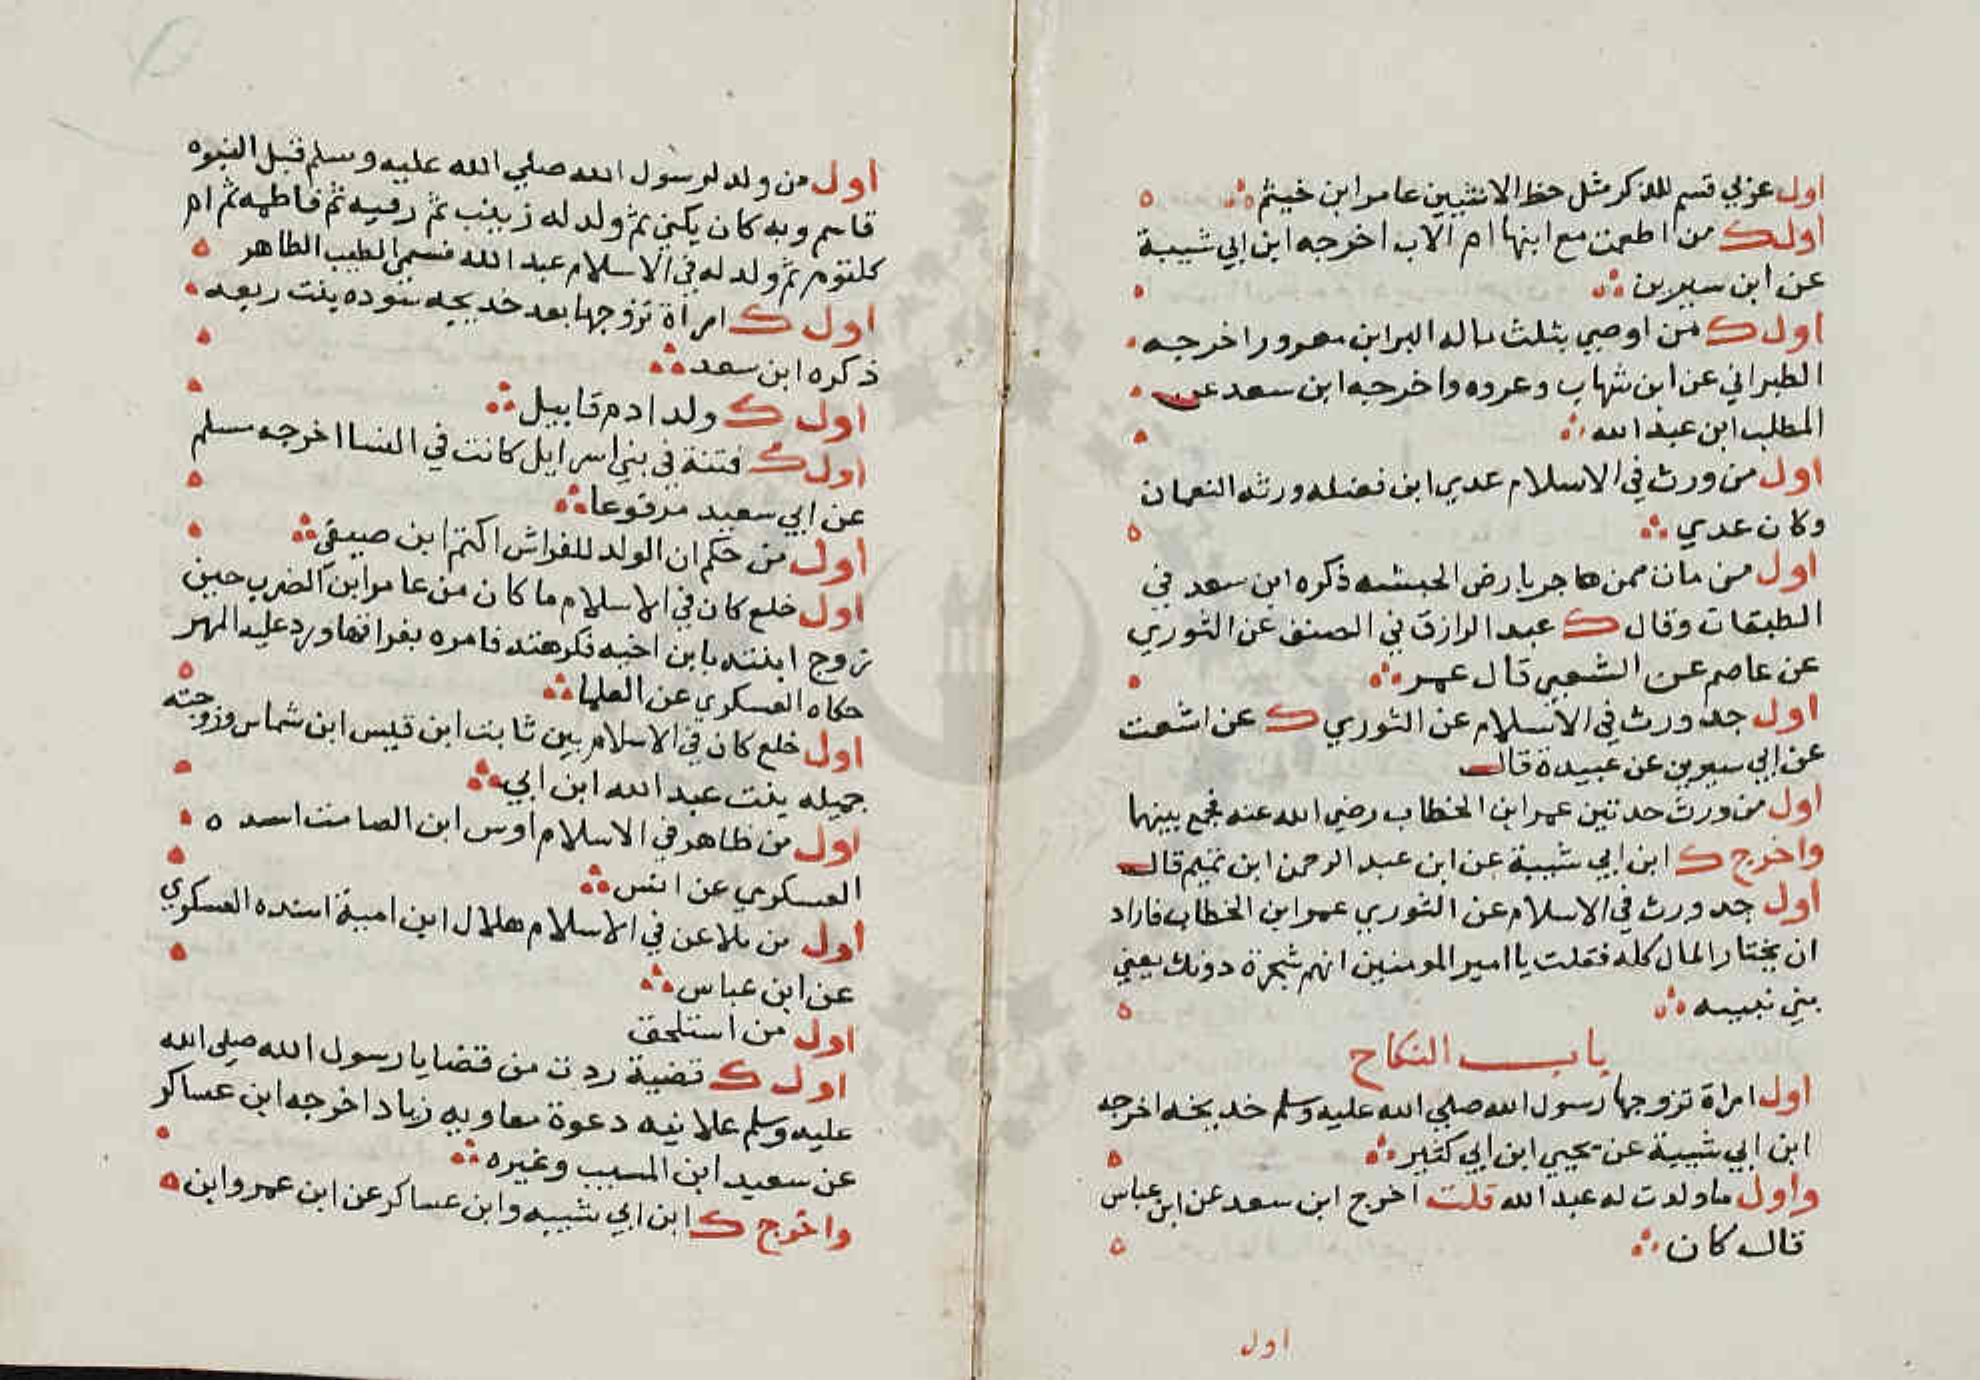 اول عربي قسم للذكر مثل حظ الانثيين عامر ابن خيثم
اول ك من اطعمت مع ابنها ام الاب اخرجه ابن ابي شيبة
عن ابن سيرين
اول ك من اوصي بثلث ماله البر ابن معرور اخرجه
الطبراني عن ابن شهاب وعروه واخرجه ابن سعد عن
المطلب ابن عبد الله
اول من ورث في الاسلام عدي ابن فضله ورثه النعمان
وكان عدي
اول من مات ممن هاجر بارض الحبشه ذكره ابن سعد في
الطبقات وقال ك عبد الرازق في المصنف عن الثوري
عن عاصم عن الشعبي قال عمر
اول جد ورث في الاسلام عن الثوري ك عن اشعث
عن ابي سيرين عن عبيدة قال
اول من ورث جدتين عمر ابن الخطاب رضي الله عنه فجمع بينهما
واخرج ك ابن ابي شيبة عن ابن عبد الرحمن ابن تميم قال
اول جد ورث في الاسلام عن الثوري عمر ابن الخطاب فاراد
ان يختار المال كله فقلت يا امير المومنين انهم شجرة دونك يعني
بني نبيه
باب النكاح
اول امراة تزوجها رسول الله صلي الله عليه وسلم خديجه اخرجه
ابن ابي شيبة عن يحيي ابن ابي كثير
واول ما ولدت له عبد الله قلت اخرج ابن سعد عن ابن عباس
قال كان
اول
اول من ولد لرسول الله صلي الله عليه وسلم قبل النبوه
قاسم وبه كان يكني ثم ولد له زينب ثم رقيه ثم فاطمه ثم ام
كلثوم ثم ولد له في الاسلام عبد الله فسمي الطيب الطاهر
اول ك امراة تزوجها بعد خديجه سوده بنت ربيعه
ذكره ابن سعد
اول ك ولد ادم قابيل
اول ك فتنة في بني اسرايل كانت في النسا اخرجه مسلم
عن ابي سعيد مرفوعا
اول من حكم ان الولد للفراش اكثم ابن صيفي
اول خلع كان في الاسلام ما كان من عامر ابن الضرب حين
زوج ابنته بابن اخيه فكرهته فامره بفراقها ورد عليه المهر
حكاه العسكري عن العلما
اول خلع كان في الاسلام بين ثابت ابن قيس ابن شماس وزوجته
جميله بنت عبد الله ابن ابي
اول من ظاهر في الاسلام اوس ابن الصامت اسد
العسكري عن انس
اول من تلاعن في الاسلام هلال ابن امية اسنده العسكري
عن ابن عباس
اول من استلحق
اول ك قضية ردت من قضايا رسول الله صلي الله
عليه وسلم علانيه دعوة معاويه زياد اخرجه ابن عساكر
عن سعيد ابن المسيب وغيره
واخرج ك ابن ابي شيبه وابن عساكر عن ابن عمر وابن